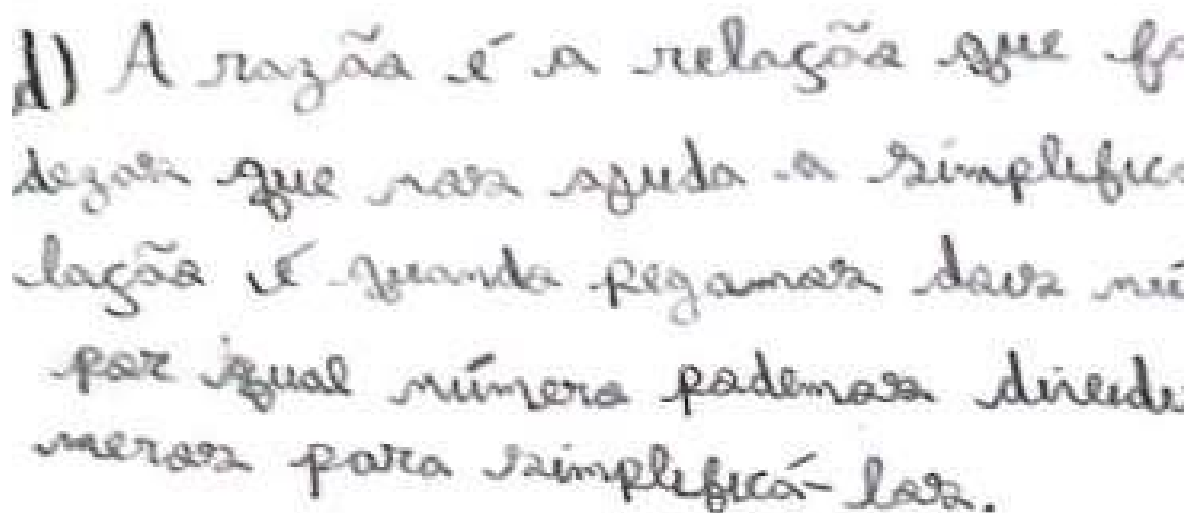 d) A razão é a relação que fa
dezas que nos ajuda a simplifica
lação é quando pegamos dois nú
por igual número podemos dividi
meros para simplificá-los.